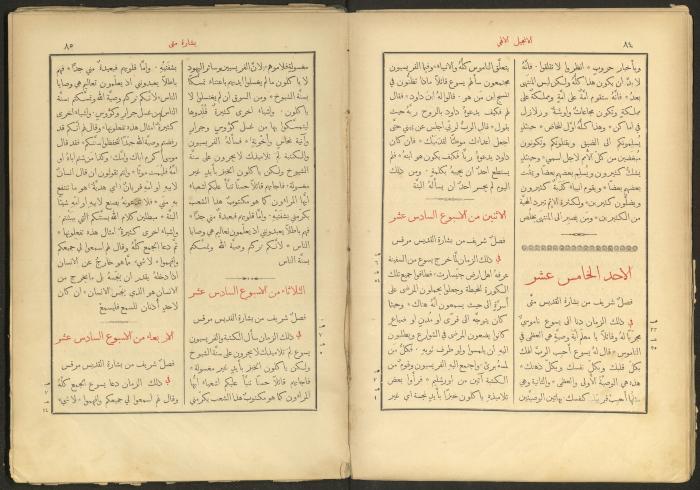 ٨٤
الانجيل الالهي
وباخبار حروب * انظروا لا تقلقوا * فانه
لا بدّ ان يكون هذا كلّه ولكن ليس المنتهى
بعد * فانه ستقوم امّة على امّة ومملكة على
مملكة وتكون مجاعات واوبئة وزلازل
في اماكن * وهذا كلّه اوّل المخاض * حينئذٍ
يسلمونكم الى الضيق ويقتلونكم وتكونون
مبغضين من كلّ الامم لاجل اسمي * وحينئذٍ
يشكّ كثيرون ويسلم بعضهم بعضًا ويمقت
بعضهم بعضًا * ويقوم انبياء كذبة كثيرون
ويضلّون كثيرين * ولكثرة الاثم تبرد المحبة
من الكثيرين * ومن يصبر الى المنتهى يخلص
الاحد الخامس عشر
فصل شريف من بشارة القديس متى
في ذلك الزمان دنا الى يسوع ناموسيّ
مجرّبًا له وقائلاً يا معلّم ايّة وصية هي العظمى في
الناموس * قال له يسوع أحبب الربّ الهك
بكلّ قلبك وبكلّ نفسك وبكلّ ذهنك *
هذه هي الوصية الأولى والعظمى * والثانية وهي
مثلها أحبب قريبك كنفسك بهاتين الوصيتين
يتعلّق الناموس كلّه والانبياء * وفيما الفريسيون
مجتمعون سألهم يسوع قائلاً ماذا تظنّون في
المسيح ابن من هو * قالوا له ابن داود * فقال
لهم فكيف يدعوه داود بالروح ربّه حيث
يقول * قال الربّ لربّي اجلس عن يميني حتى
اجعل اعداءك موطئًا لقدميك * فان كان
داود يدعوه ربًّا فكيف يكون هو ابنه * فلم
يستطع احد ان يجيبه بكلمة * ومن ذلك
اليوم لم يجسر احد ان يسأله البتّة
الاثنين من الاسبوع السادس عشر
فصل شريف من بشارة القديس مرقس
في ذلك الزمان لمّا خرج يسوع من السفينة
عرفه اهل ارض جنيسارت * فطافوا جميع تلك
الكورة المحيطة وجعلوا يحملون المرضى على
أسرّة الى حيث يسمعون انه هناك * وحيثما
كان يتوجّه الى قرى او مدن او ضياع
كانوا يضعون المرضى في الشوارع ويطلبون
اليه ان يلمسوا ولو طرف ثوبه * فكلّ من
لمسه برئ * واجتمع اليه الفريسيون وقوم من
الكتبة آتين من اورشليم * فرأوا بعض
تلاميذه يأكلون خبزًا بأيدٍ نجسة اي غير
بشارة متى
٨٥
مغسولة فلاموهم * لانّ الفريسيين وسائر اليهود
لا يأكلون ما لم يغسلوا ايديهم باعتناء تمسّكًا
بسنّة الشيوخ * ومن السوق ان لم يغتسلوا لا
يأكلون * واشياء اخرى كثيرة قلّدوها
ليتمسّكوا بها من غسل كؤوس وجرار
وآنية نحاس وأخونة * فسأله الفريسيون
والكتبة لم تلاميذك لا يجرون على سنّة
الشيوخ ولكن يأكلون الخبز بأيدٍ غير
مغسولة * فاجابهم قائلاً حسنًا تنبّأ عليكم اشعياء
ايها المراءون كما هو مكتوب هذا الشعب
يكرمني بشفتيه * وامّا قلوبهم فبعيدة منّي جدًّا *
فهم باطلاً يعبدونني اذ يعلّمون تعاليم هي وصايا
الناس * لانّكم تركتم وصيّة الله وتمسّكتم
بسنّة الناس
الثلاثاء من الاسبوع السادس عشر
فصل شريف من بشارة القديس مرقس
في ذلك الزمان سأل الكتبة والفريسيون
يسوع لم تلاميذك لا يجرون على سنّة الشيوخ
ولكن يأكلون الخبز بأيدٍ غير مغسولة *
فاجابهم قائلاً حسنًا تنبّأ عليكم اشعياء ايها
المراءون كما هو مكتوب هذا الشعب يكرمني
بشفتيه * وامّا قلوبهم فبعيدة منّي جدًّا * فهم
باطلاً يعبدونني اذ يعلّمون تعاليم هي وصايا
الناس * لانّكم تركتم وصيّة الله وتمسّكتم بسنّة
الناس من غسل جرار وكؤوس * واشياء اخرى
كثيرة امثال هذه تفعلونها * وقال لهم انكم قد
رفضتم وصيّة الله جيدًا لتحفظوا سنّتكم * فقد قال
موسى اكرم اباك وامّك * وكذا من شتم اباه او
امّه فليمت موتًا * وانتم تقولون ان قال انسان
لابيه او امّه قربان اي هديّة هو ما تنتفع
به منّي * فلا تدعونه يصنع لابيه او امّه شيئًا
البتّة * مبطلين كلام الله بسنّتكم التي سننتم *
واشياء اخرى كثيرة امثال هذه تفعلونها *
ثم دعا الجمع كلّه وقال لهم اسمعوا لي جميعكم
وافهموا * لا شيء مما هو خارج عن الانسان
اذا دخله يقدر ان ينجّسه بل ما يخرج من
الانسان هو الذي ينجّس الانسان * ان كان
لاحد أذنان للسمع فليسمع
الاربعاء من الاسبوع السادس عشر
فصل شريف من بشارة القديس مرقس
في ذلك الزمان دعا يسوع الجمع كلّه
وقال لهم اسمعوا لي جميعكم وافهموا * لا شيء